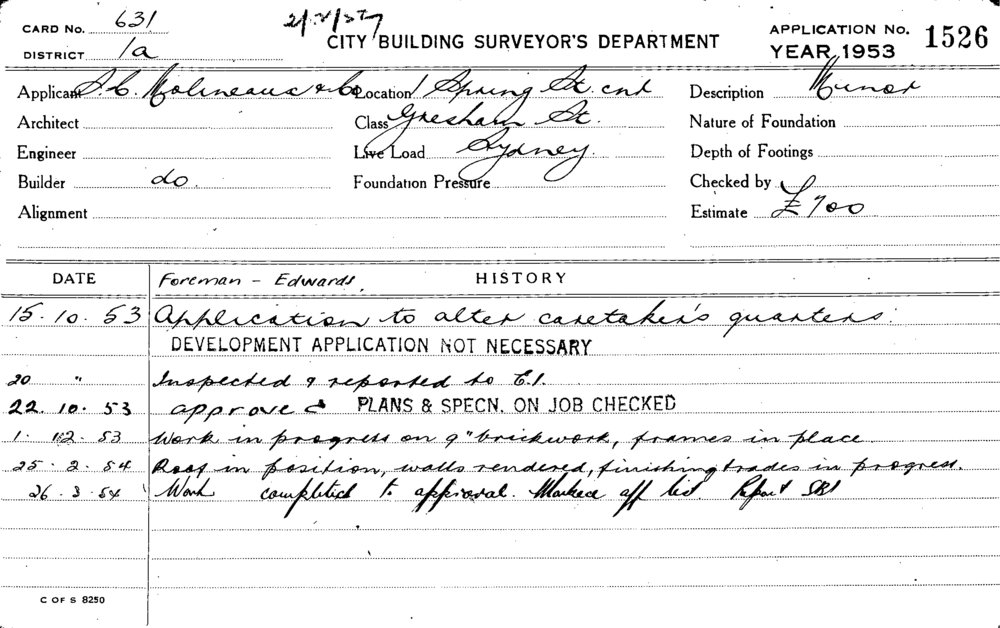 CARD No. 631
DISTRICT 1a
CITY BUILDING SURVEYOR'S DEPARTMENT
APPLICATION No. 1526
YEAR 1953
Applicant S.C. Molineaux & Co Location 1 Spring St. cnr Description Minor
Architect Class Gresham St. Nature of Foundation
Engineer Live Load Sydney. Depth of Footings
Builder do. Foundation Pressure Checked by
Alignment Estimate £700
DATE Foreman - Edwards. HISTORY
15.10.53 Application to alter caretaker's quarters.
DEVELOPMENT APPLICATION NOT NECESSARY
20 " Inspected & reported to C.I.
22.10.53 approved PLANS & SPECN. ON JOB CHECKED
1.12.53 Work in progress on 9" brickwork, frames in place
25.2.54 Roof in position, walls rendered, finishing trades in progress.
26.3.54 Work completed to approval. Marked off list. Report
C OF S 8250